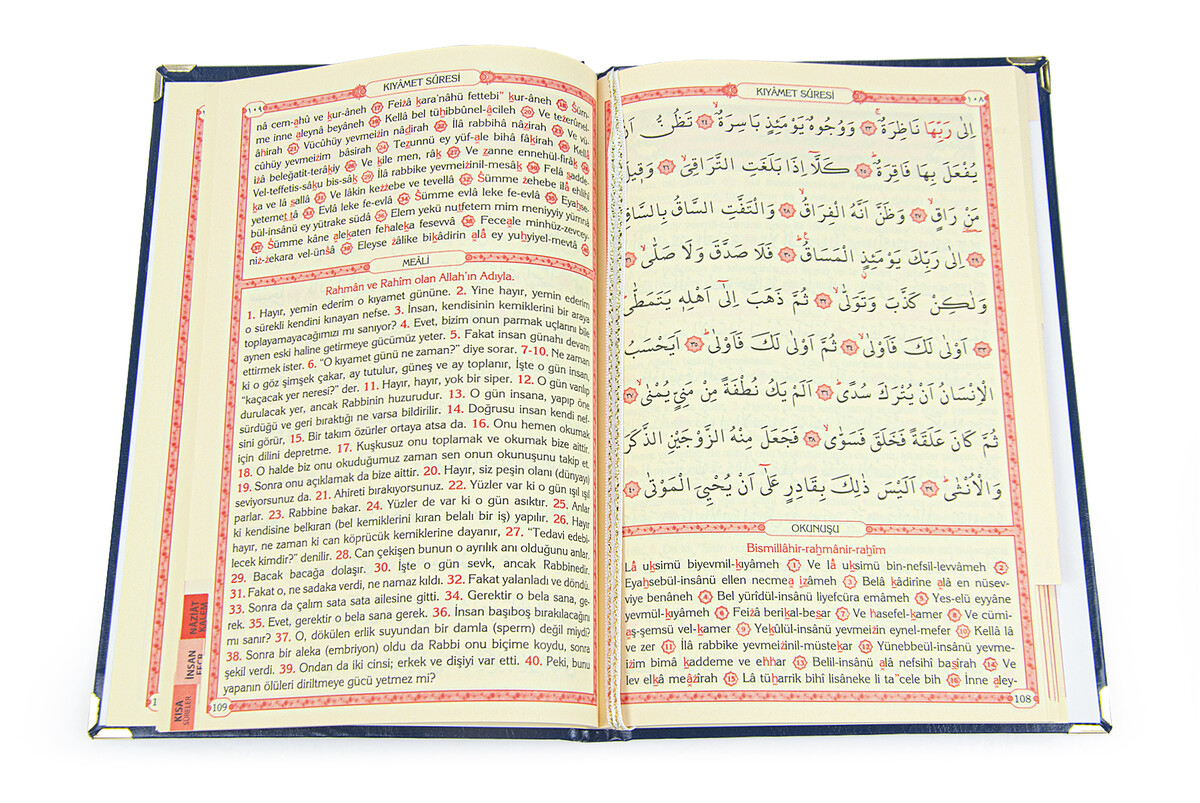 KIYÂMET SÛRESİ
١٠٨
اِلٰى رَبِّهَا نَاظِرَةٌۚ ﴿٢٣﴾ وَوُجُوهٌ يَوْمَئِذٍ بَاسِرَةٌۙ ﴿٢٤﴾ تَظُنُّ اَنْ
يُفْعَلَ بِهَا فَاقِرَةٌۜ ﴿٢٥﴾ كَلَّٓا اِذَا بَلَغَتِ التَّرَاقِيَۙ ﴿٢٦﴾ وَقٖيلَ
مَنْ رَاقٍۙ ﴿٢٧﴾ وَظَنَّ اَنَّهُ الْفِرَاقُۙ ﴿٢٨﴾ وَالْتَفَّتِ السَّاقُ بِالسَّاقِۙ
﴿٢٩﴾ اِلٰى رَبِّكَ يَوْمَئِذٍۨ الْمَسَاقُۜ ﴿٣٠﴾ فَلَا صَدَّقَ وَلَا صَلّٰىۙ ﴿٣١﴾
وَلٰكِنْ كَذَّبَ وَتَوَلّٰىۙ ﴿٣٢﴾ ثُمَّ ذَهَبَ اِلٰٓى اَهْلِهٖ يَتَمَطّٰىۜ
﴿٣٣﴾ اَوْلٰى لَكَ فَاَوْلٰىۙ ﴿٣٤﴾ ثُمَّ اَوْلٰى لَكَ فَاَوْلٰىۜ ﴿٣٥﴾ اَيَحْسَبُ
الْاِنْسَانُ اَنْ يُتْرَكَ سُدًىۜ ﴿٣٦﴾ اَلَمْ يَكُ نُطْفَةً مِنْ مَنِيٍّ يُمْنٰىۙ ﴿٣٧﴾
ثُمَّ كَانَ عَلَقَةً فَخَلَقَ فَسَوّٰىۙ ﴿٣٨﴾ فَجَعَلَ مِنْهُ الزَّوْجَيْنِ الذَّكَرَ
وَالْاُنْثٰىۜ ﴿٣٩﴾ اَلَيْسَ ذٰلِكَ بِقَادِرٍ عَلٰٓى اَنْ يُحْيِيَ الْمَوْتٰى ﴿٤٠﴾
OKUNUŞU
Bismillâhir-rahmânir-rahîm
Lâ uksimü biyevmil-kıyâmeh (1) Ve lâ uksimü bin-nefsil-levvâmeh (2)
Eyahsebül-insânü ellen necmea ızâmeh (3) Belâ kâdirîne alâ en nüsev-
viye benâneh (4) Bel yürîdül-insânü liyefcüra emâmeh (5) Yes-elü eyyâne
yevmül-kıyâmeh (6) Feizâ berikal-besar (7) Ve hasefel-kamer (8) Ve cümi-
aş-şemsü vel-kamer (9) Yekûlül-insânü yevmeizin eynel-mefer (10) Kellâ lâ
ve zer (11) İlâ rabbike yevmeizinil-müstekar (12) Yünebbeül-insânü yevme-
izim bimâ kaddeme ve ehhar (13) Belil-insânü alâ nefsihî basîrah (14) Ve
lev elkâ meâzîrah (15) Lâ tüharrik bihî lisâneke li ta"cele bih (16) İnne aley-
108
١٠٩
KIYÂMET SÛRESİ
nâ cem-ahû ve kur-âneh (17) Feizâ kara'nâhü fettebi" kur-âneh (18) Süm-
me inne aleynâ beyâneh (19) Kellâ bel tühıbbûnel-âcileh (20) Ve tezerûnel-
âhırah (21) Vücûhüy yevmeizin nâdirah (22) İlâ rabbihâ nâzirah (23) Ve vü-
cûhüy yevmeizim bâsirah (24) Tezunnü ey yüf-ale bihâ fâkirah (25) Kellâ
izâ beleğatit-terâkıy (26) Ve kîle men, râk (27) Ve zanne ennehül-firâk (28)
Vel-teffetis-sâku bis-sâk (29) İlâ rabbike yevmeizinil-mesâk (30) Felâ sadde-
ka ve lâ sallâ (31) Ve lâkin kezzebe ve tevellâ (32) Sümme zehebe ilâ ehlihî
yetemet tâ (33) Evlâ leke fe-evlâ (34) Sümme evlâ leke fe-evlâ (35) Eyahse-
bül-insânü ey yütrake südâ (36) Elem yekü nutfetem mim meniyyiy yümnâ
(37) Sümme kâne alekaten fehaleka fesevvâ (38) Feceale minhüz-zevcey-
niz-zekara vel-ünsâ (39) Eleyse zâlike bikâdirin alâ ey yuhyiyel-mevtâ (40)
MEÂLİ
Rahmân ve Rahîm olan Allah'ın Adıyla.
1. Hayır, yemin ederim o kıyamet gününe. 2. Yine hayır, yemin ederim
o sürekli kendini kınayan nefse. 3. İnsan, kendisinin kemiklerini bir araya
toplayamayacağımızı mı sanıyor? 4. Evet, bizim onun parmak uçlarını bile
aynen eski haline getirmeye gücümüz yeter. 5. Fakat insan günahı devam
ettirmek ister. 6. "O kıyamet günü ne zaman?" diye sorar. 7-10. Ne zaman
ki o göz şimşek çakar, ay tutulur, güneş ve ay toplanır, İşte o gün insan,
"kaçacak yer neresi?" der. 11. Hayır, hayır, yok bir siper. 12. O gün vanlıp
durulacak yer, ancak Rabbinin huzurudur. 13. O gün insana, yapıp öne
sürdüğü ve geri bıraktığı ne varsa bildirilir. 14. Doğrusu insan kendi nef-
sini görür, 15. Bir takım özürler ortaya atsa da. 16. Onu hemen okumak
için dilini depretme. 17. Kuşkusuz onu toplamak ve okumak bize aittir.
18. O halde biz onu okuduğumuz zaman sen onun okunuşunu takip et.
19. Sonra onu açıklamak da bize aittir. 20. Hayır, siz peşin olanı (dünyayı)
seviyorsunuz da. 21. Ahireti bırakıyorsunuz. 22. Yüzler var ki o gün ışıl ışıl
parlar. 23. Rabbine bakar. 24. Yüzler de var ki o gün asıktır. 25. Anlar
ki kendisine belkıran (bel kemiklerini kıran belalı bir iş) yapılır. 26. Hayır
hayır, ne zaman ki can köprücük kemiklerine dayanır, 27. "Tedavi edebi-
lecek kimdir?" denilir. 28. Can çekişen bunun o ayrılık anı olduğunu anlar.
29. Bacak bacağa dolaşır. 30. İşte o gün sevk, ancak Rabbinedir.
31. Fakat o, ne sadaka verdi, ne namaz kıldı. 32. Fakat yalanladı ve döndü.
33. Sonra da çalım sata sata ailesine gitti. 34. Gerektir o bela sana, ge-
rek. 35. Evet, gerektir o bela sana gerek. 36. İnsan başıboş bırakılacağını
mı sanır? 37. O, dökülen erlik suyundan bir damla (sperm) değil miydi?
38. Sonra bir aleka (embriyon) oldu da Rabbi onu biçime koydu, sonra
şekil verdi. 39. Ondan da iki cinsi; erkek ve dişiyi var etti. 40. Peki, bunu
yapanın ölüleri diriltmeye gücü yetmez mi?
109
NÂZİÂT
KALEM
İNSAN
FECR
KISA
SÛRELER